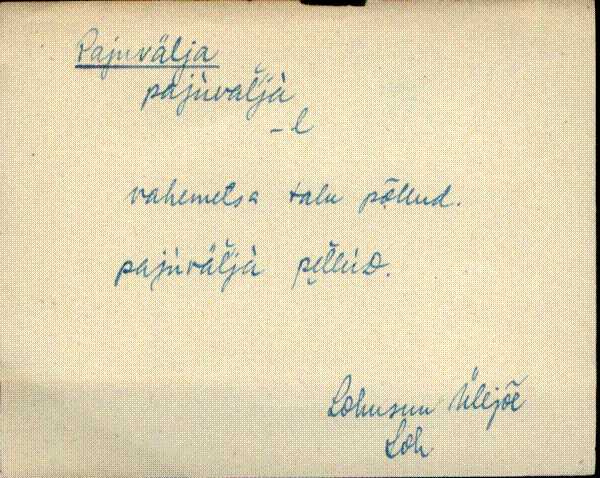 Pajuvälja
pajùväljà
-l
vahemetsa talu põllud.
pajùväljà pẹllùD.
Lohusuu Ülejõe
Loh